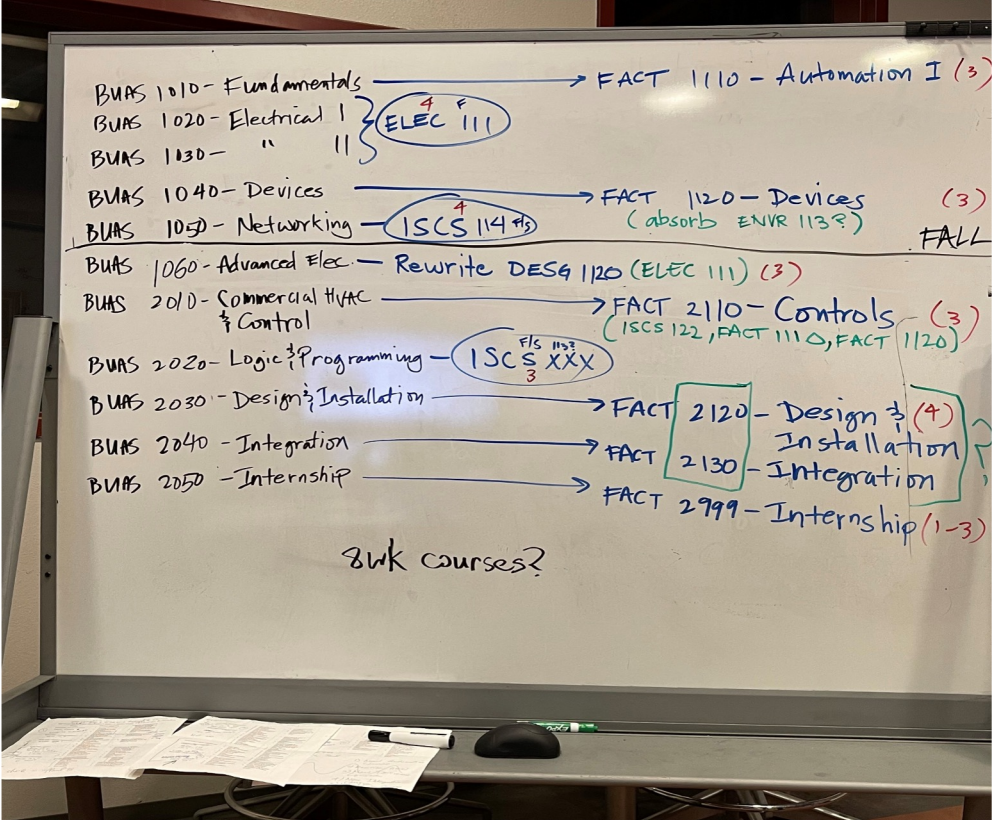 BUAS 1010 - Fundamentals → FACT 1110 - Automation I (3)
BUAS 1020 - Electrical I } ELEC 111 4 F
BUAS 1030 - " II
BUAS 1040 - Devices → FACT 1120 - Devices (3)
(absorb ENVR 113?)
BUAS 1050 - Networking - ISCS 114 F/S 4
FALL
BUAS 1060 - Advanced Elec. - Rewrite DESG 1120 (ELEC 111) (3)
BUAS 2010 - Commercial HVAC → FACT 2110 - Controls - (3)
& Control (ISCS 122, FACT 1110, FACT 1120)
BUAS 2020 - Logic & Programming - ISCS XXX F/S 113? 3
BUAS 2030 - Design & Installation → FACT 2120 - Design & (4)
Installation
BUAS 2040 - Integration → FACT 2130 - Integration ?
BUAS 2050 - Internship → FACT 2999 - Internship (1-3)
8wk courses?
EXPO